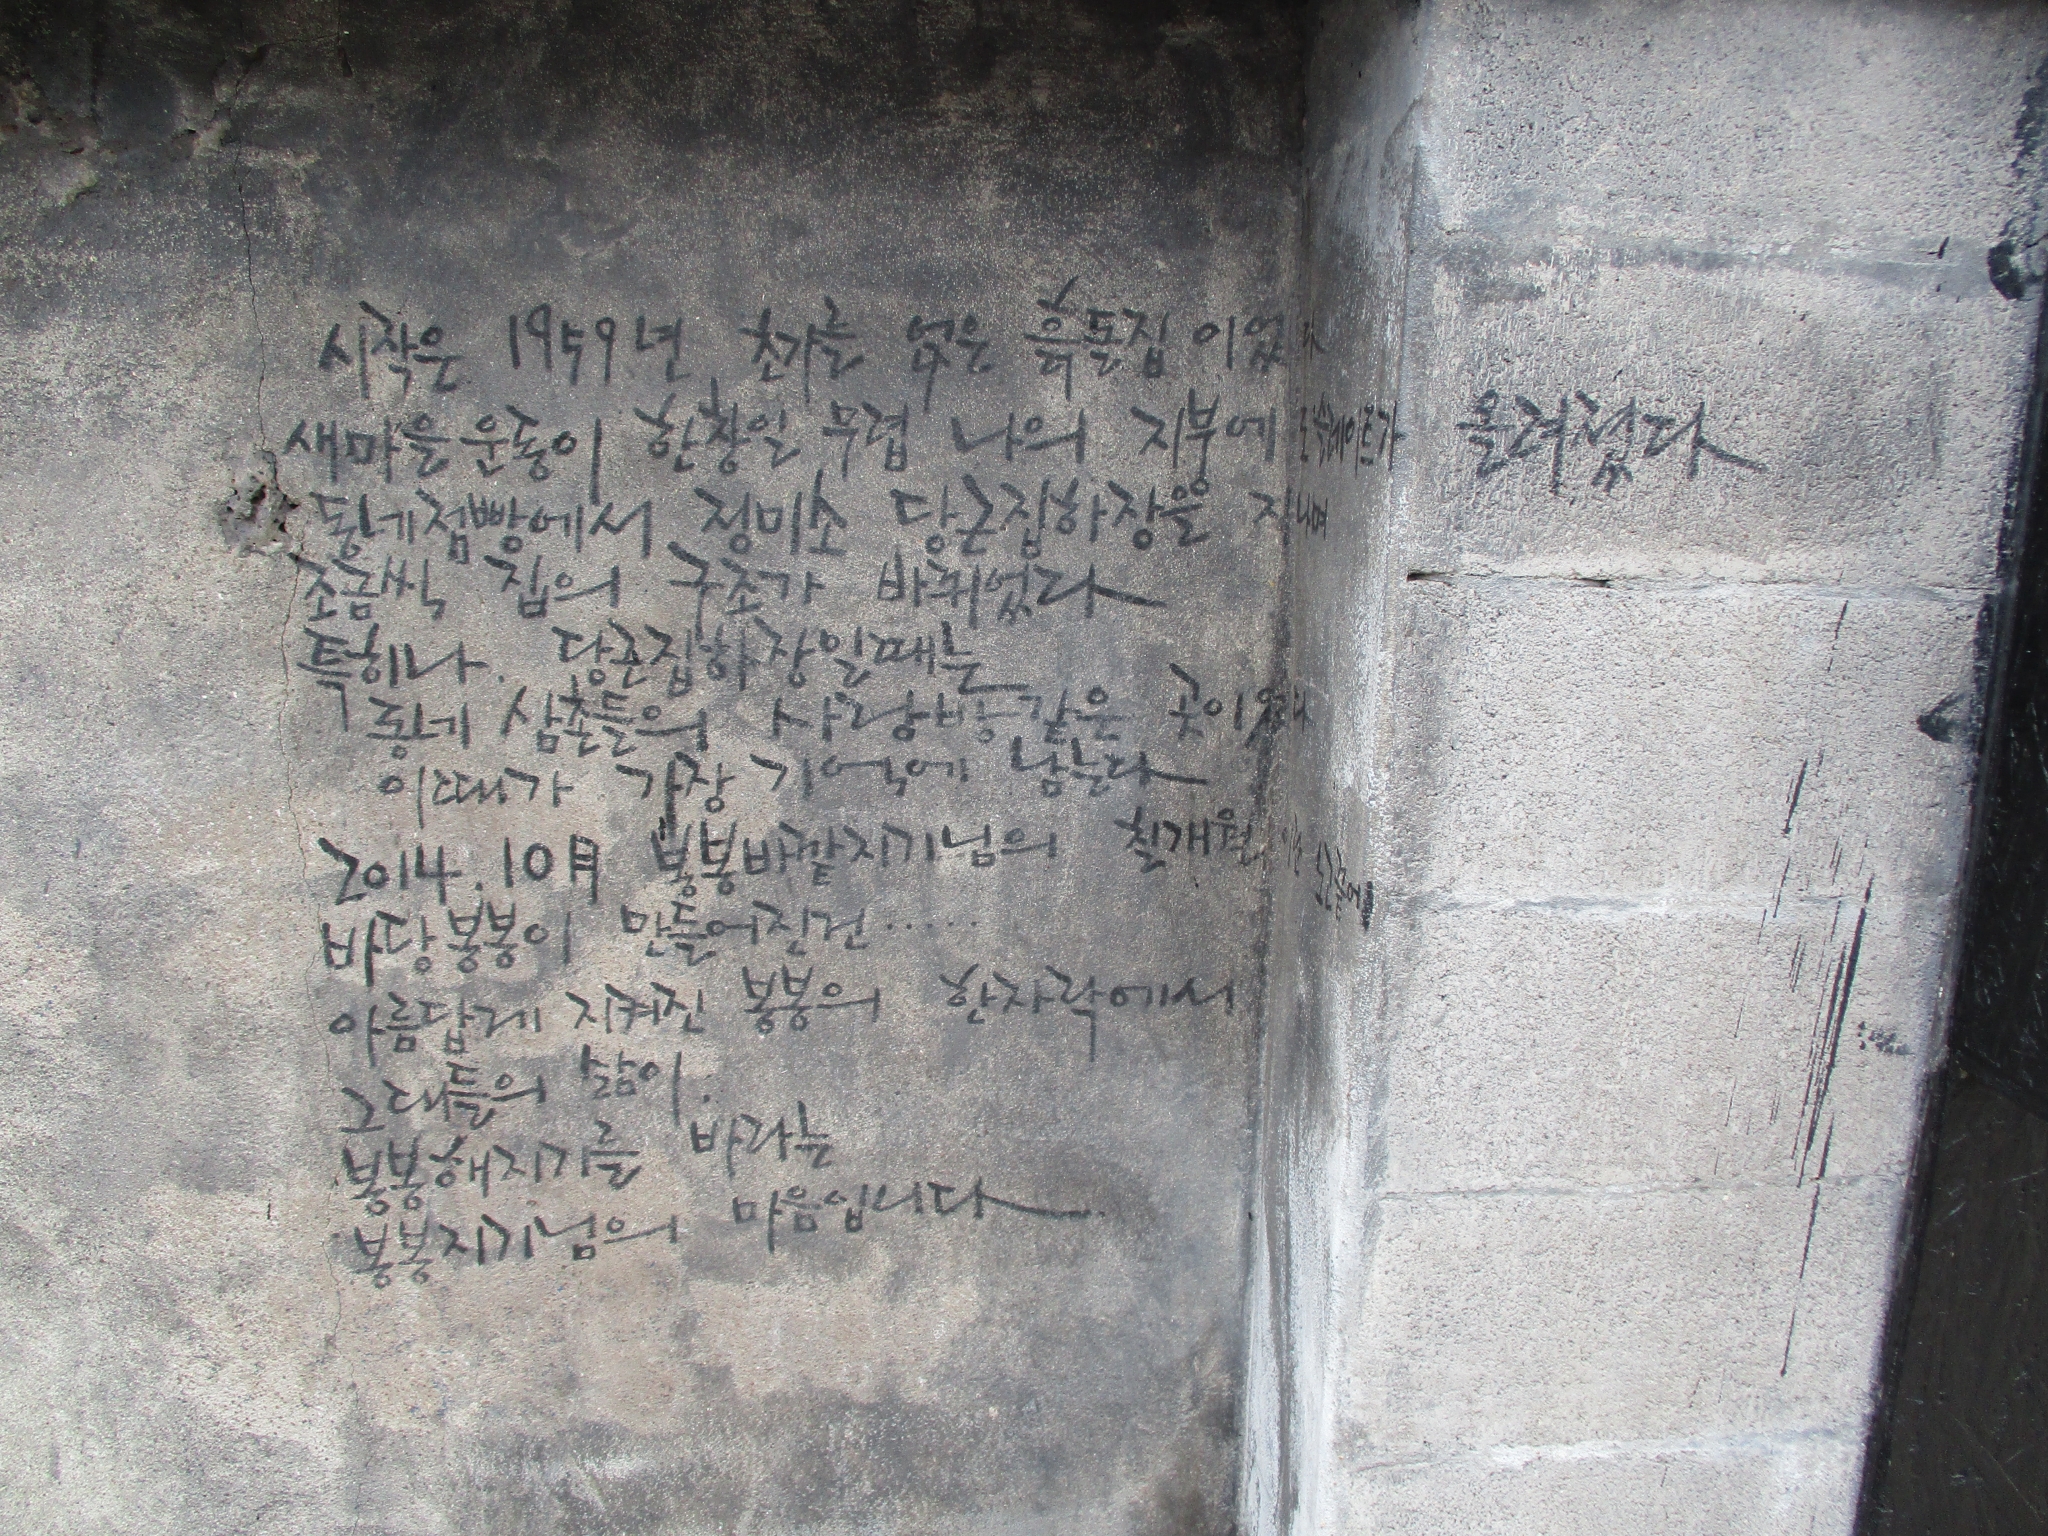 시작은 1959년 초가를 얹은 흙돌집이었다
새마을운동이 한창일 무렵 나의 지붕에 스레이트가 올려졌다
동네점빵에서 정미소 당근집하장을 지나며
조금씩 집의 구조가 바뀌었다
특히나. 당근집하장일때는
동네 삼춘들의 사랑방같은 곳이었다
이때가 가장 기억에 남는다
2014.10月 봉봉바깥지기님의 칠개월
바당봉봉이 만들어진건……
아름답게 지켜진 봉봉의 한자락에서
그대들의 삶이.
봉봉해지기를 바라는
봉봉지기님의 마음입니다